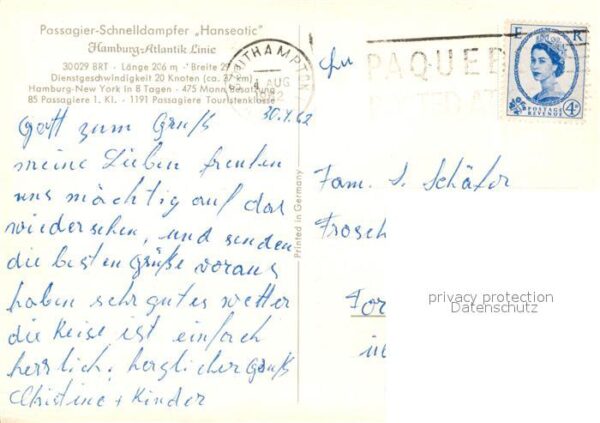 Passagier-Schnelldampfer „Hanseatic"
Hamburg-Atlantik Linie
30029 BRT - Länge 206 m - Breite 27 m
Dienstgeschwindigkeit 20 Knoten (ca. 37 km)
Hamburg-New York in 8 Tagen - 475 Mann Besatzung
85 Passagiere 1. Kl. - 1191 Passagiere Touristenklasse
30.7.62
Gott zum Gruß
meine Lieben freuten
uns mächtig auf das
wiedersehen, und senden
die besten Grüße voraus
haben sehr gutes wetter
die Reise ist einfach
herrlich, herzlicher Gruß
Christine + Kinder
Printed in Germany
SOUTHAMPTON
AUG
1962
PAQUEB
POSTED AT
E R
POSTAGE
REVENUE
4D
An
Fam. S. Schäfer
Frosch
For
privacy protection
Datenschutz